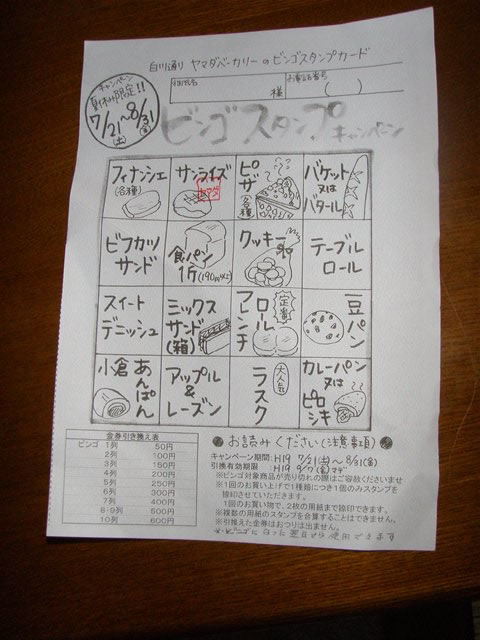 白川通り ヤマダベーカリーのビンゴスタンプカード
お名前
様
お電話番号
(　)
キャンペーン
夏休み限定!!
7/21〜8/31
(土) (金)
ビンゴスタンプキャンペーン
フィナンシェ
(各種)
サンライズ
ヤマダ
ピザ
(各種)
バケット
又は
バタール
ビフカツ
サンド
食パン
1斤
クッキー
テーブル
ロール
スイート
デニッシュ
ミックス
サンド
(箱)
フレンチ
ロール
定番
豆パン
小倉
あんぱん
アップル
&
レーズン
ラスク
大人気
カレーパン
又は
ピロシキ
金券引き換え表
ビンゴ 1列 50円
2列 100円
3列 150円
4列 200円
5列 250円
6列 300円
7列 400円
8-9列 500円
10列 600円
お読みください(注意事項)
キャンペーン期間: H19 7/21(土)〜8/31(金)
引換有効期限 H19 9/7(金)マデ
※ビンゴ対象商品が売り切れの際はご容赦くださいませ
※1回のお買い上げで1種類につき1個のみスタンプを
捺印させていただきます。
1回のお買い物で、2枚の用紙まで捺印できます。
※複数の用紙のスタンプを合算することはできません。
※引換えた金券はおつりは出ません。